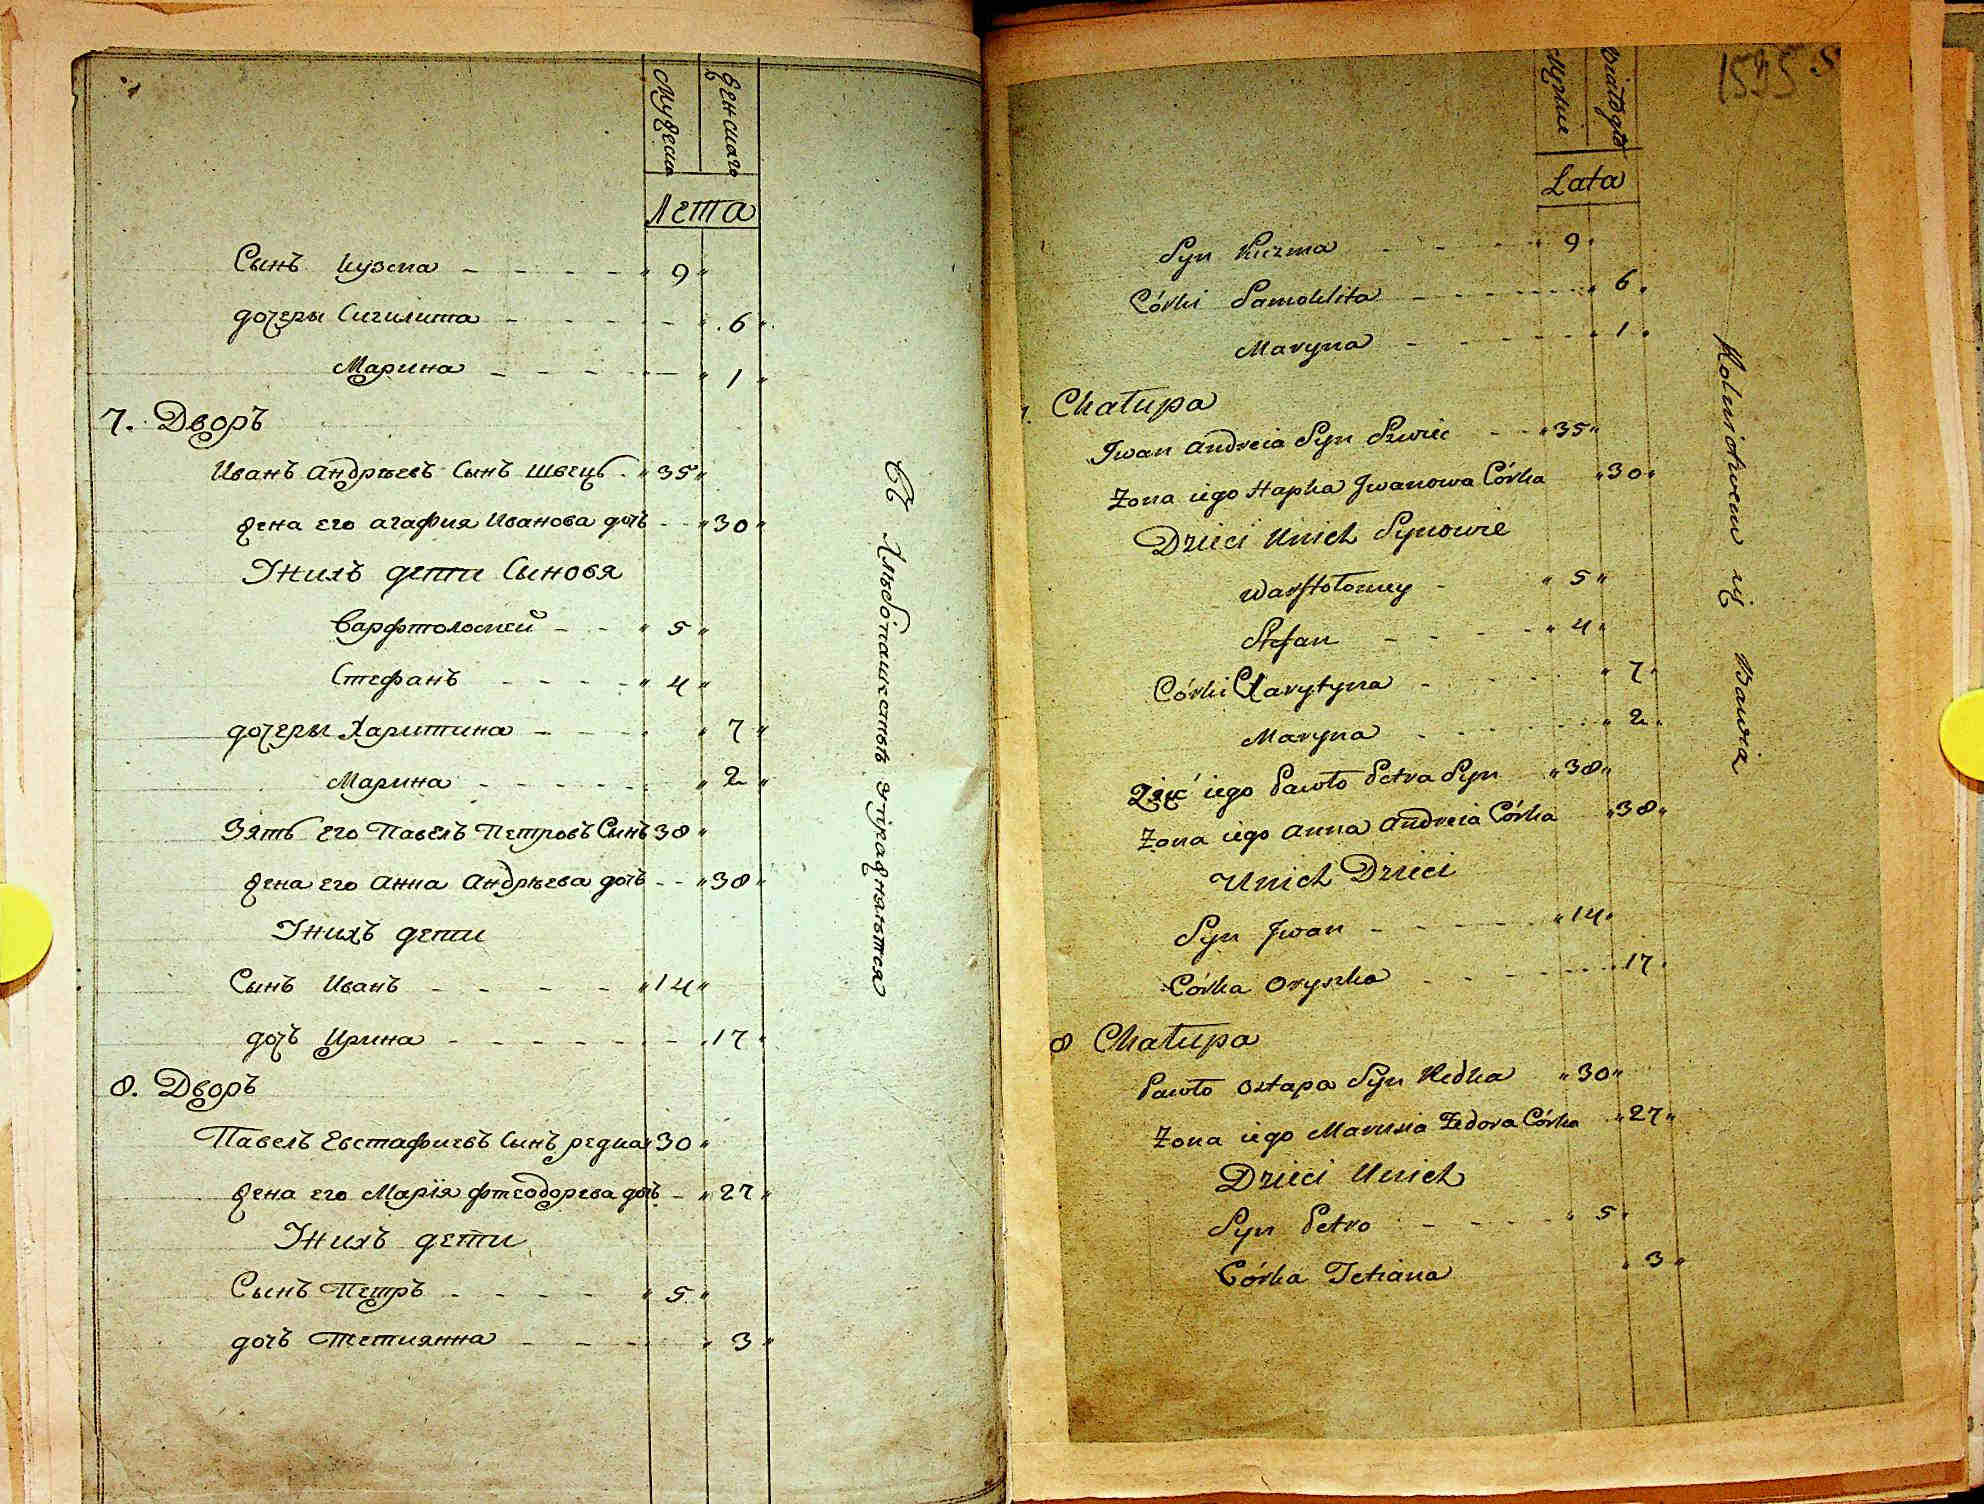 Мужеска
Женскаго
Лета
Сынъ Кузма 9
дочеры Сигилита 6
Марина 1
7. Дворъ
Иванъ Андрѣевъ Сынъ швецъ 35
жена его агафия Иванова дочь 30
Унихъ дети Сыновя
Варфтоломей 5
Стефанъ 4
дочеры Харитина 7
Марина 2
Зять его Павелъ Петровъ Сынъ 38
жена его Анна Андрѣева дочь 38
Унихъ дети
Сынъ Иванъ 14
дочь Ирина 17
8. Дворъ
Павелъ Евстафиевъ Сынъ редка 30
жена его Марія фтеодорева дочь 27
Унихъ дети
Сынъ Петръ 5
дочь Тетиянна 3
Хлѣбопашествомъ
1595
Lata
Syn Kuzma 9
Córki Samoklita 6
Maryna 1
7. Chałupa
Jwan Andreia Syn Szwiec 35
Żona iego Hapka Jwanowa Córka 30
Dzieci Unich Synowie
Warftołomey 5
Stefan 4
Córki Charytyna 7
Maryna 2
Zięć iego Pawło Petra Syn 38
Żona iego Anna Andreia Córka 38
Unich Dzieci
Syn Jwan 14
Córka Oryszka 17
8 Chałupa
Pawło Ostapa Syn Redka 30
Żona iego Marusia Fedora Córka 27
Dzieci Unich
Syn Petro 5
Córka Tetiana 3
Rolnictwem się Bawią